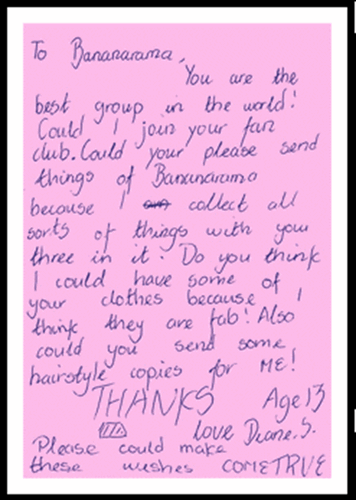 To Bananarama,
You are the
best group in the world!
Could I join your fan
club. Could your please send
things of Bananarama
because I collect all
sorts of things with you
three in it. Do you think
I could have some of
your clothes because I
think they are fab! Also
could you send some
hairstyle copies for ME!
THANKS Age 13
love Diane.S.
Please could make
these wishes COMETRUE